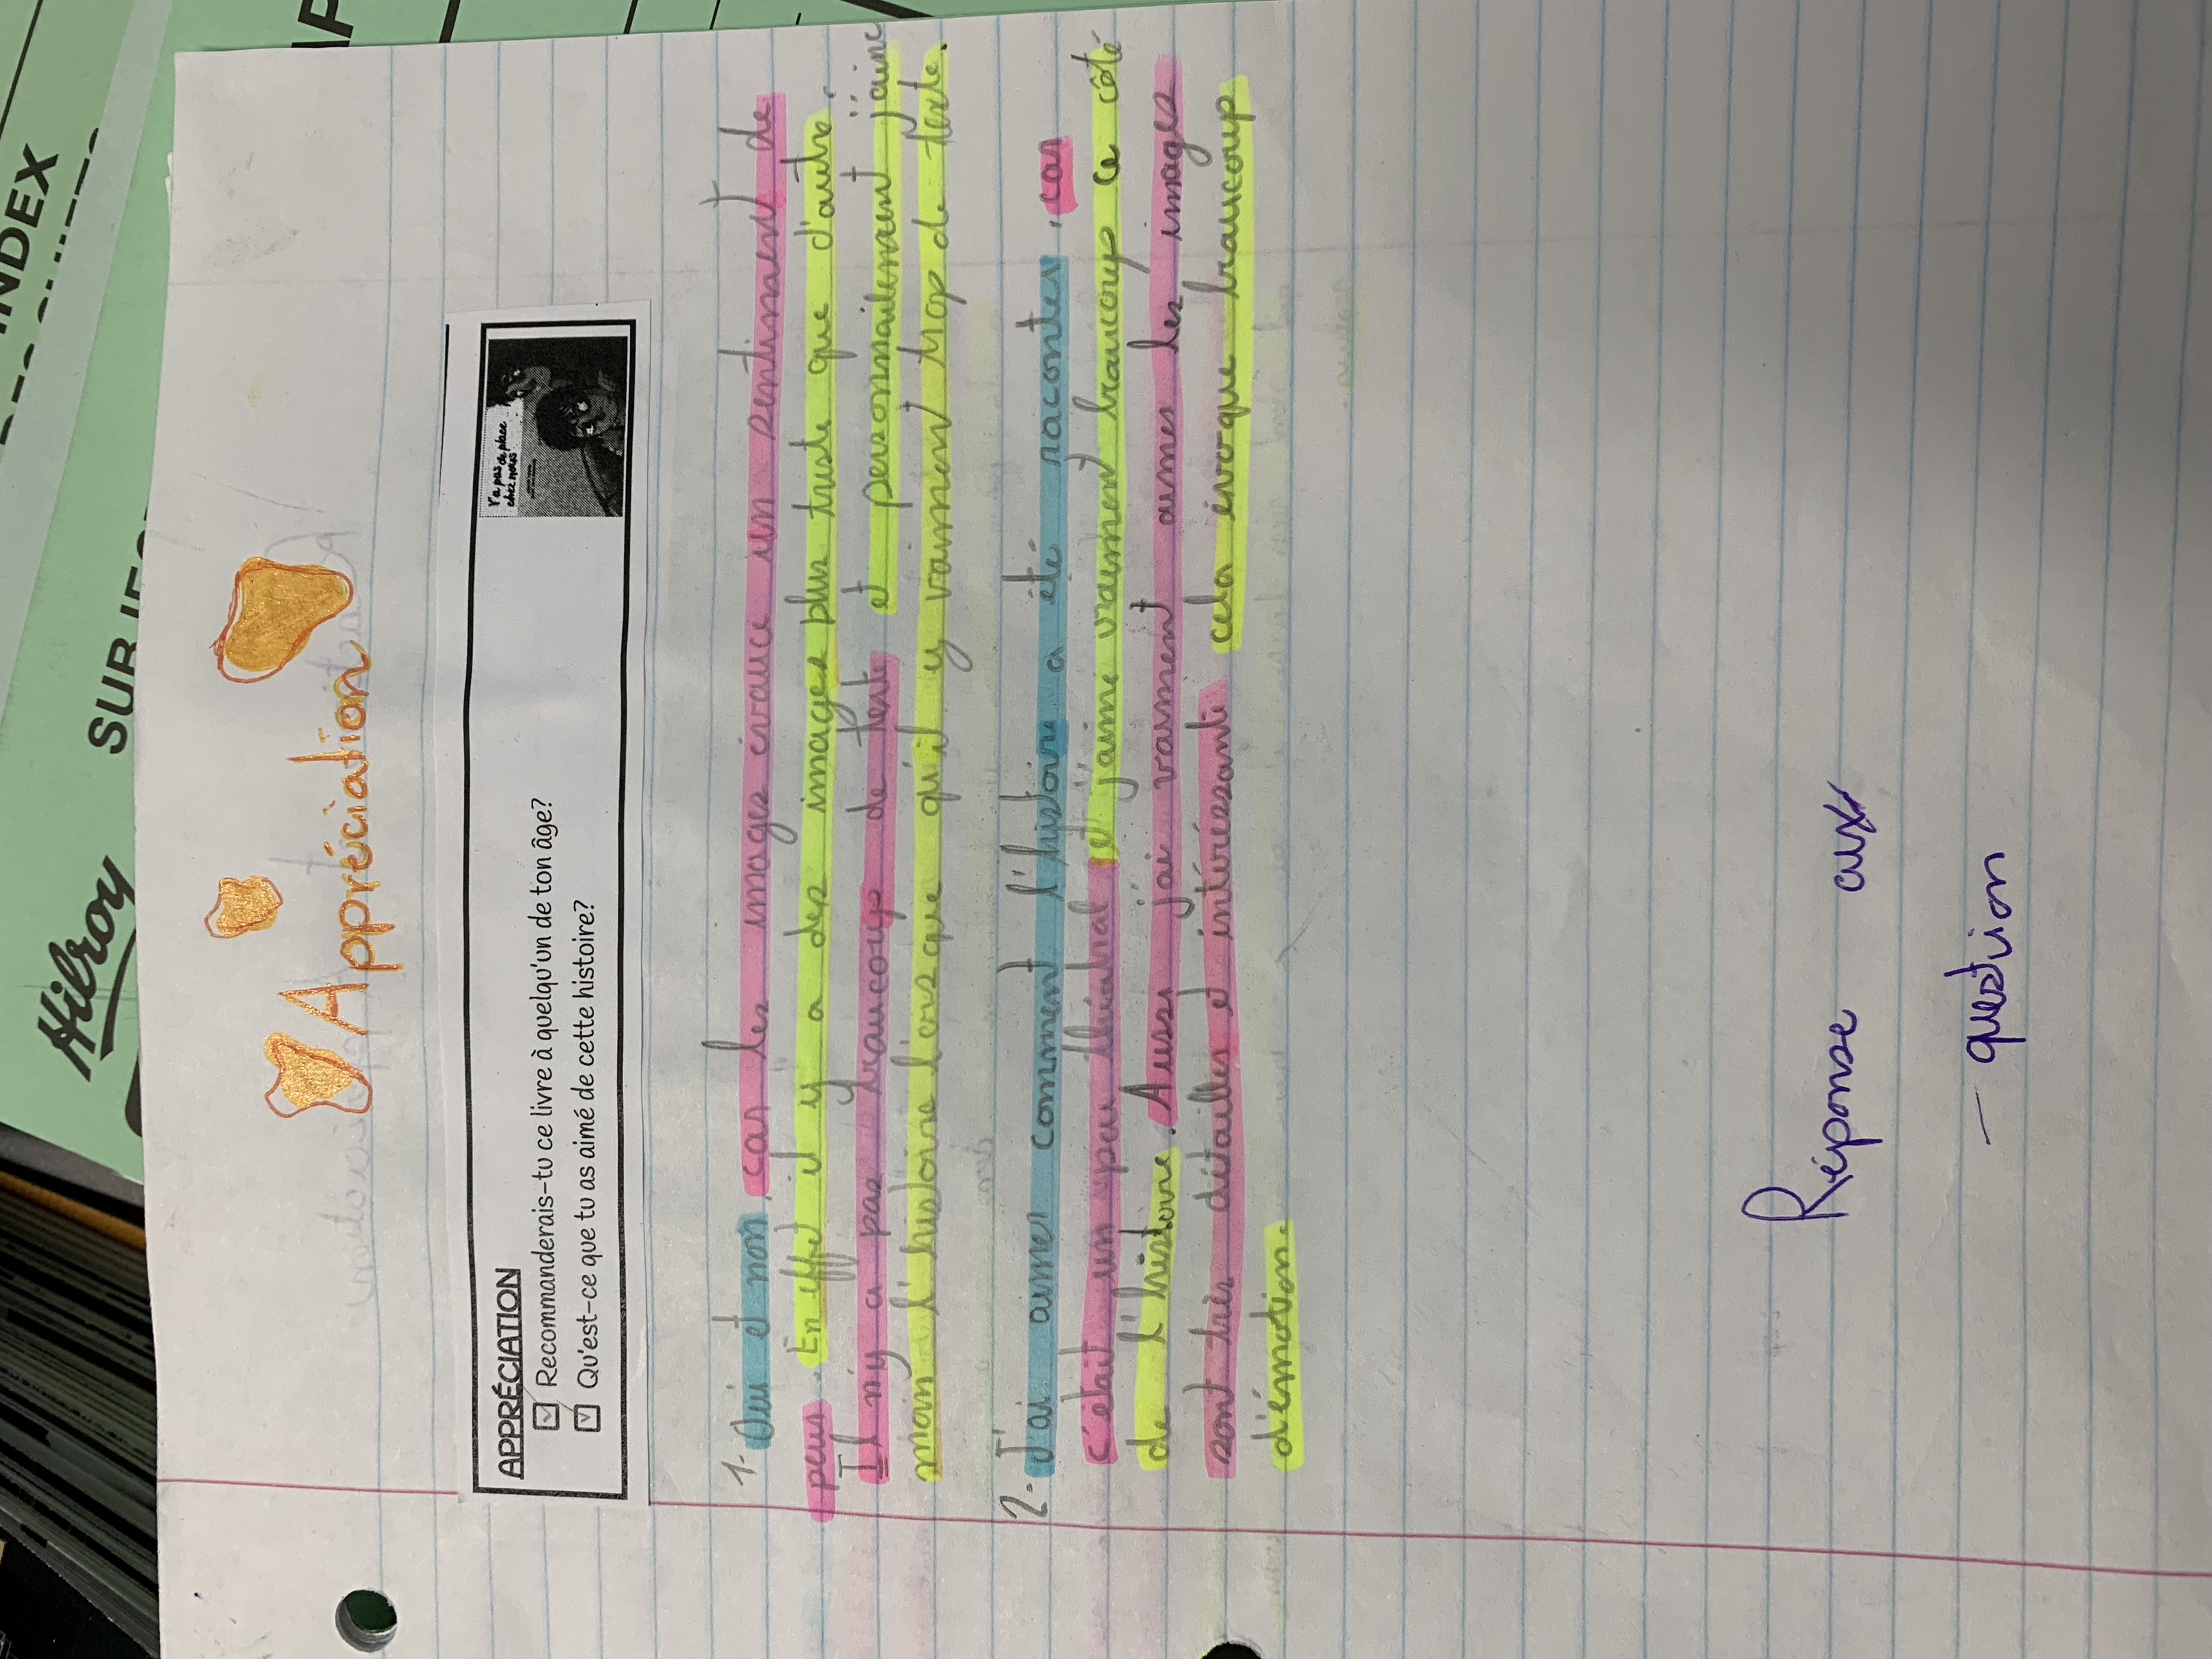 INDEX
SUBJEC
Hilroy
Appréciation
APPRÉCIATION
Recommanderais-tu ce livre à quelqu'un de ton âge?
Qu'est-ce que tu as aimé de cette histoire?
Y'a pas de place chez nous
1- Oui et non, car les images évauce un sentiment de
peur. En effet il y a des images plus triste que d'autre.
Il n'y a pas beaucoup de texte et personnailement j'aime
moin l'histoire lorsque qu'il y vaiment trop de texte.
2- J'ai aimer comment l'histoire a été raconter, car
c'était un peu théatral et j'aime vraiment beaucoup ce côté
de l'histoire. Aussi j'ai vraiment aimer les images
sont très détailler et intéréssante cela évoque beaucoup
d'émotion.
Réponse aux
- question